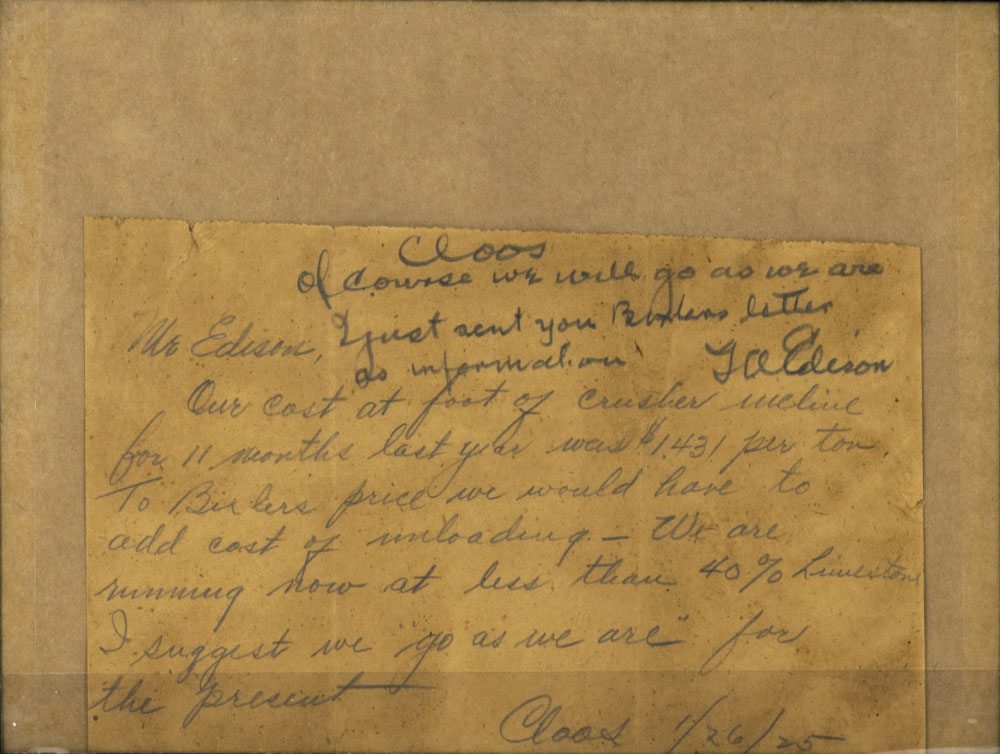 Cloos
Of course we will go as we are
I just sent you Bixlers letter
as information T A Edison
Mr Edison,
Our cost at foot of crusher incline
for 11 months last year was $1.431 per ton.
To Bixlers price we would have to
add cost of unloading – We are
running now at less than 40% Limestone
I suggest we "go as we are" for
the present
Cloos 1/26/25